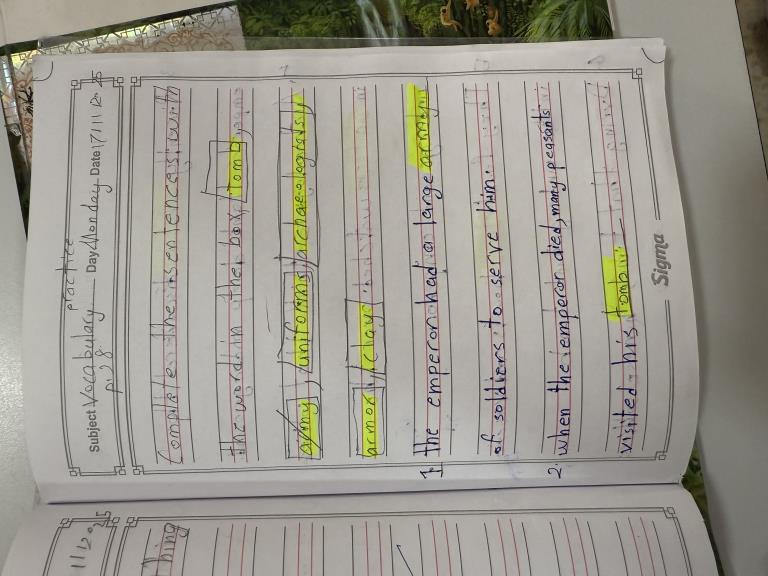 practice
Subject Vocabulary Day Monday Date 17/11/2025
p. 8
Complete the sentences with
the word in the box, tomb,
army, uniforms, archaeologists,
armor, clay
1. the emperor had a large army
of soldiers to serve him.
2. when the emperor died, many peasants
visited his tomb.
Sigma
thing